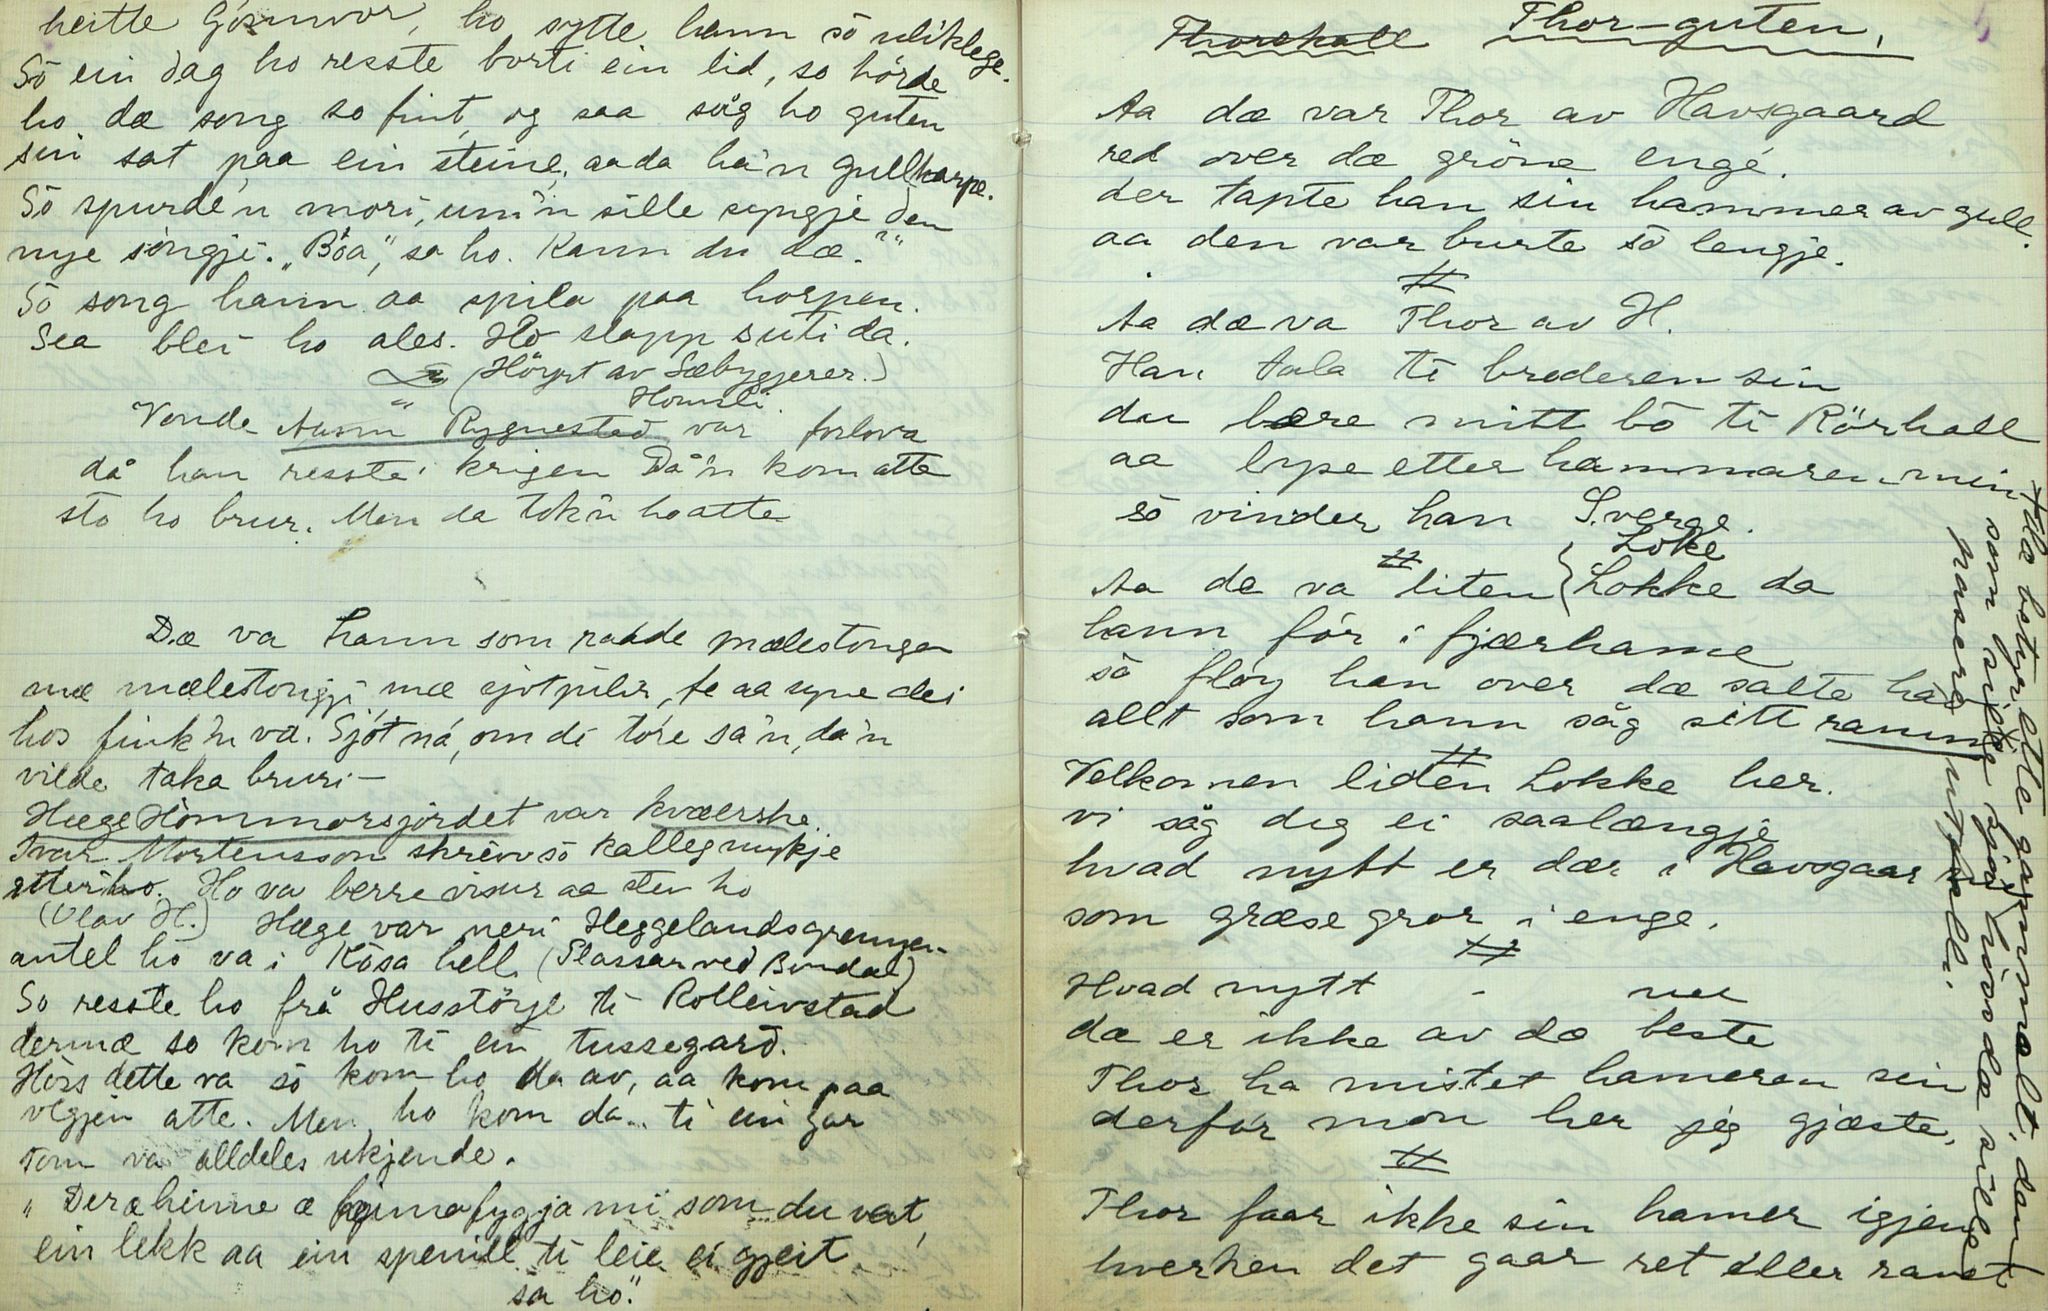 heitte Gósmvor, ho sytte hann só uliklege.
Só ein dag ho resste borti ein lid, so hörde
ho dæ song so fint, og saa såg ho guten
sin sat paa ein steine, aa da ha'n gullharpe.
Só spurde'n mori, um'n sille syngje den
nye songje. "Bóa", sa ho. Kann du dæ."
Só song hann aa spila paa horpen.
Sea blei ho ales. Ho slapp suti da.
(Höyrt av Sæbyggjerer.)
Homsli
Vonde Aasm Rygnestad var forlova
då han resste i krigen Då'n kom atte
sto ho brur. Men da tok'n ho atte
Dæ va hann som raade mælestongen
mæ mælestongji, mæ sjotpilir, te aa syne dei
hos fink'n va. Sjot ná, om di tóre sa'n, da'n
vilde taka bruri –
Hæge Hommorsjordet var kværske.
Ivar Mortensson skreiv só kalleg mykje
etter ho. Ho va berre visur aa stev ho
(Olav H.) Hæge var neri Heggelandsgrennen
antel ho va i Kåsa hell (Plassar ved Bindal)
So resste ho frå Husstöyl ti Rolleivstad
dermæ so kom ho ti ein tussegard.
Hóss dette va só kom ho da av, aa kom paa
vegjen atte. Men ho kom da ti ein gar
som va alldeles ukjende.
"Der æ hinne æ heimafygja mi som du vat,
ein lekk aa ein spenill ti leie ei gjeit
sa ho."
Thorekall Thor-guten.
Aa dæ var Thor av Havsgaard
red over dæ gröne enge.
der tapte han sin hammer av gull.
aa den var burte só lengje.
#
Aa dæ va Thor av H.
Han tala ti broderen sin
du bære mitt bó ti Rörhall
aa lype etter hammaren min
só vinder han Sverge.
#
Loke
Aa de va liten { Lokke da
hann fór i fjærhame
só flóy han over dæ salte hav
allt som hann såg sitt ramn
#
Velkomen liden Lokke her.
vi såg deg ei saalængje
hvad nytt er dær i Havsgaar
som græse gror i enge.
#
Hvad nytt – nu
dæ er ikke av dæ beste
Thor ha mistet hameren sin
derfór mon her jeg gjæste.
#
Thor faar ikke sin hamer igjen
hverken det gaar ret eller ranet
+ dæ betyr ette gammalt, dan
som sille sjóa hivda sille
passera